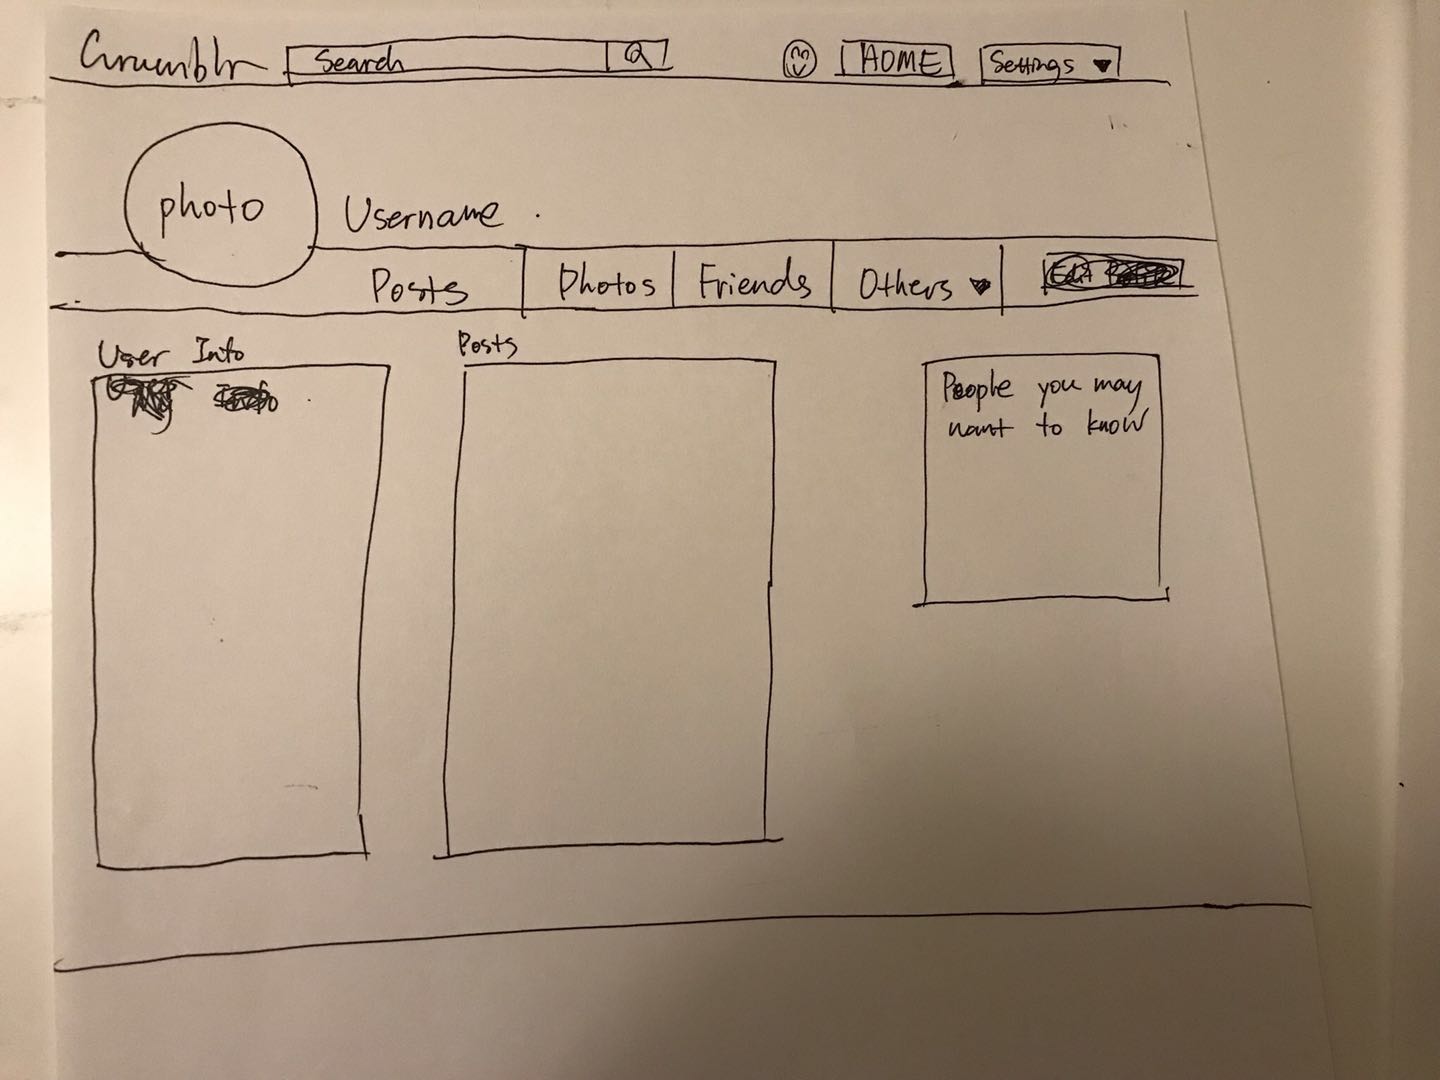 Grumblr Search HOME Settings
photo
Username
Posts Photos Friends Others
User Info
Posts
People you may
want to know